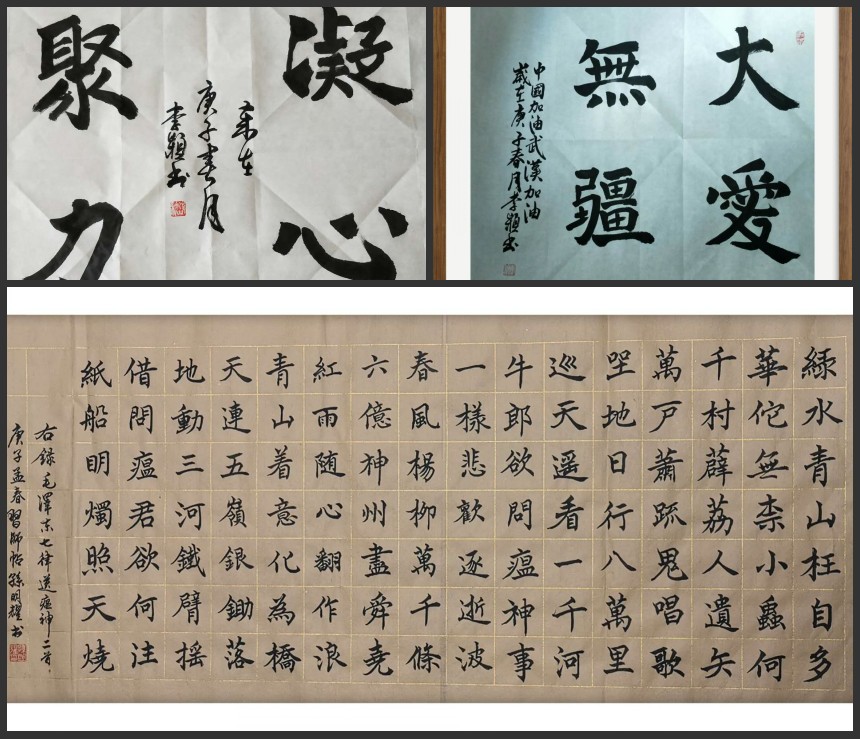 凝心
聚力
歲在
庚子春月
李穎书
大愛
無疆
中国加油武漢加油
歲在庚子春月李穎书
緑水青山枉自多
華佗無柰小蟲何
千村薜荔人遺矢
萬戸蕭疏鬼唱歌
坐地日行八萬里
巡天遥看一千河
牛郎欲問瘟神事
一樣悲歡逐逝波
春風楊柳萬千條
六億神州盡舜堯
紅雨随心翻作浪
青山着意化為橋
天連五嶺銀鋤落
地動三河鐵臂摇
借問瘟君欲何注
紙船明燭照天燒
右録毛澤东七律送瘟神二首
庚子孟春習師帖孫明耀书